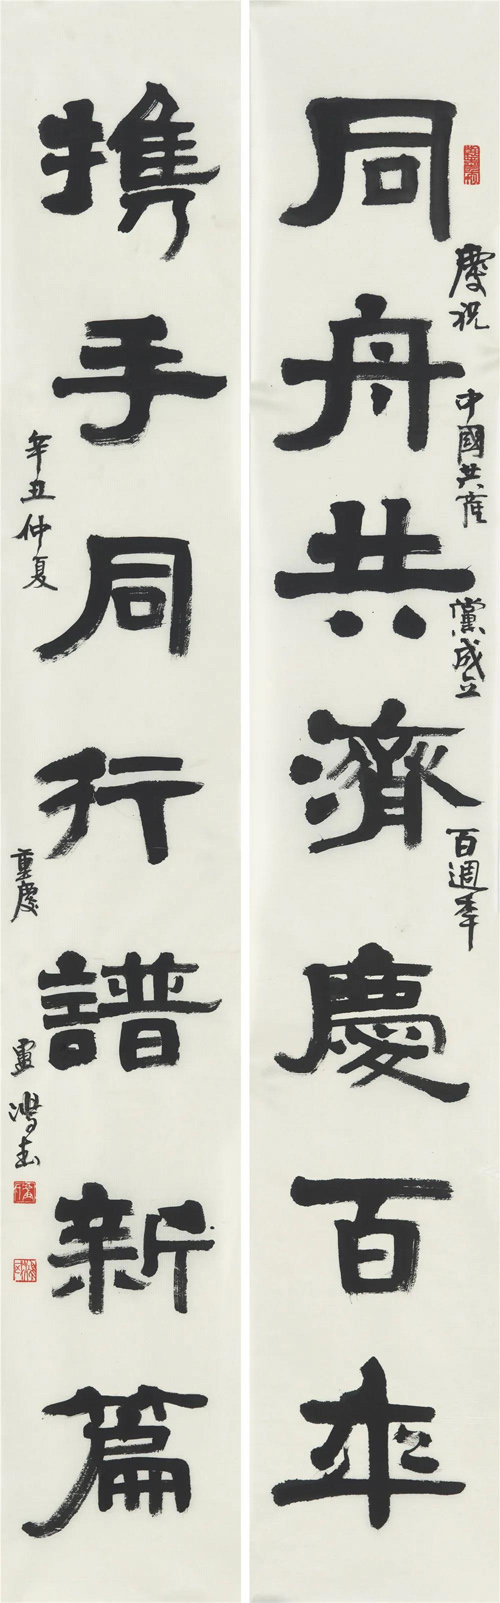 同舟共濟慶百年
慶祝中國共產黨成立百週年
攜手同行譜新篇
辛丑仲夏重慶盧鴻志